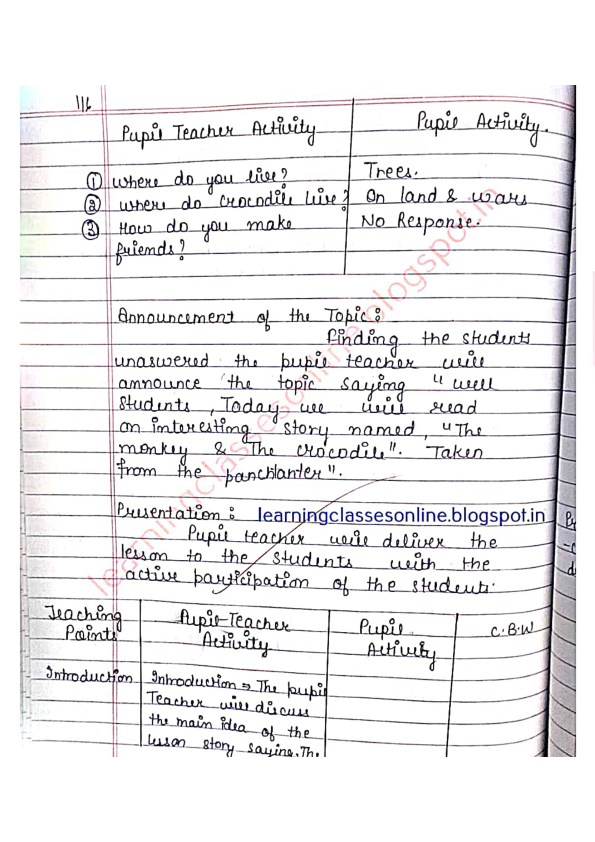 116
Pupil Teacher Activity Pupil Activity.
① where do you live? Trees.
② where do crocodile live? On land & wars
③ How do you make No Response.
friends?
Announcement of the Topic:
Finding the students
unaswered the pupil teacher will
announce the topic saying "well
students, Today we will read
an interesting story named, "The
monkey & The crocodile". Taken
from the panchtanter".
Presentation: learningclassesonline.blogspot.in
Pupil teacher will deliver the
lesson to the students with the
active participation of the students.
Teaching Points Pupil-Teacher Activity Pupil Activity C.B.W
Introduction Introduction ⇒ The pupil
Teacher will discuss
the main idea of the
lesson story saying, The
learningclassesonline.blogspot.in